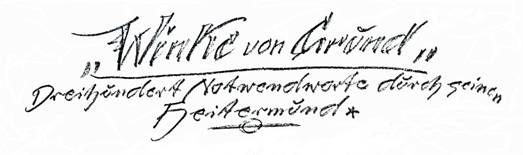 „Winke von Grund"
Dreihundert Notwendworte durch seinen
Heitermund*